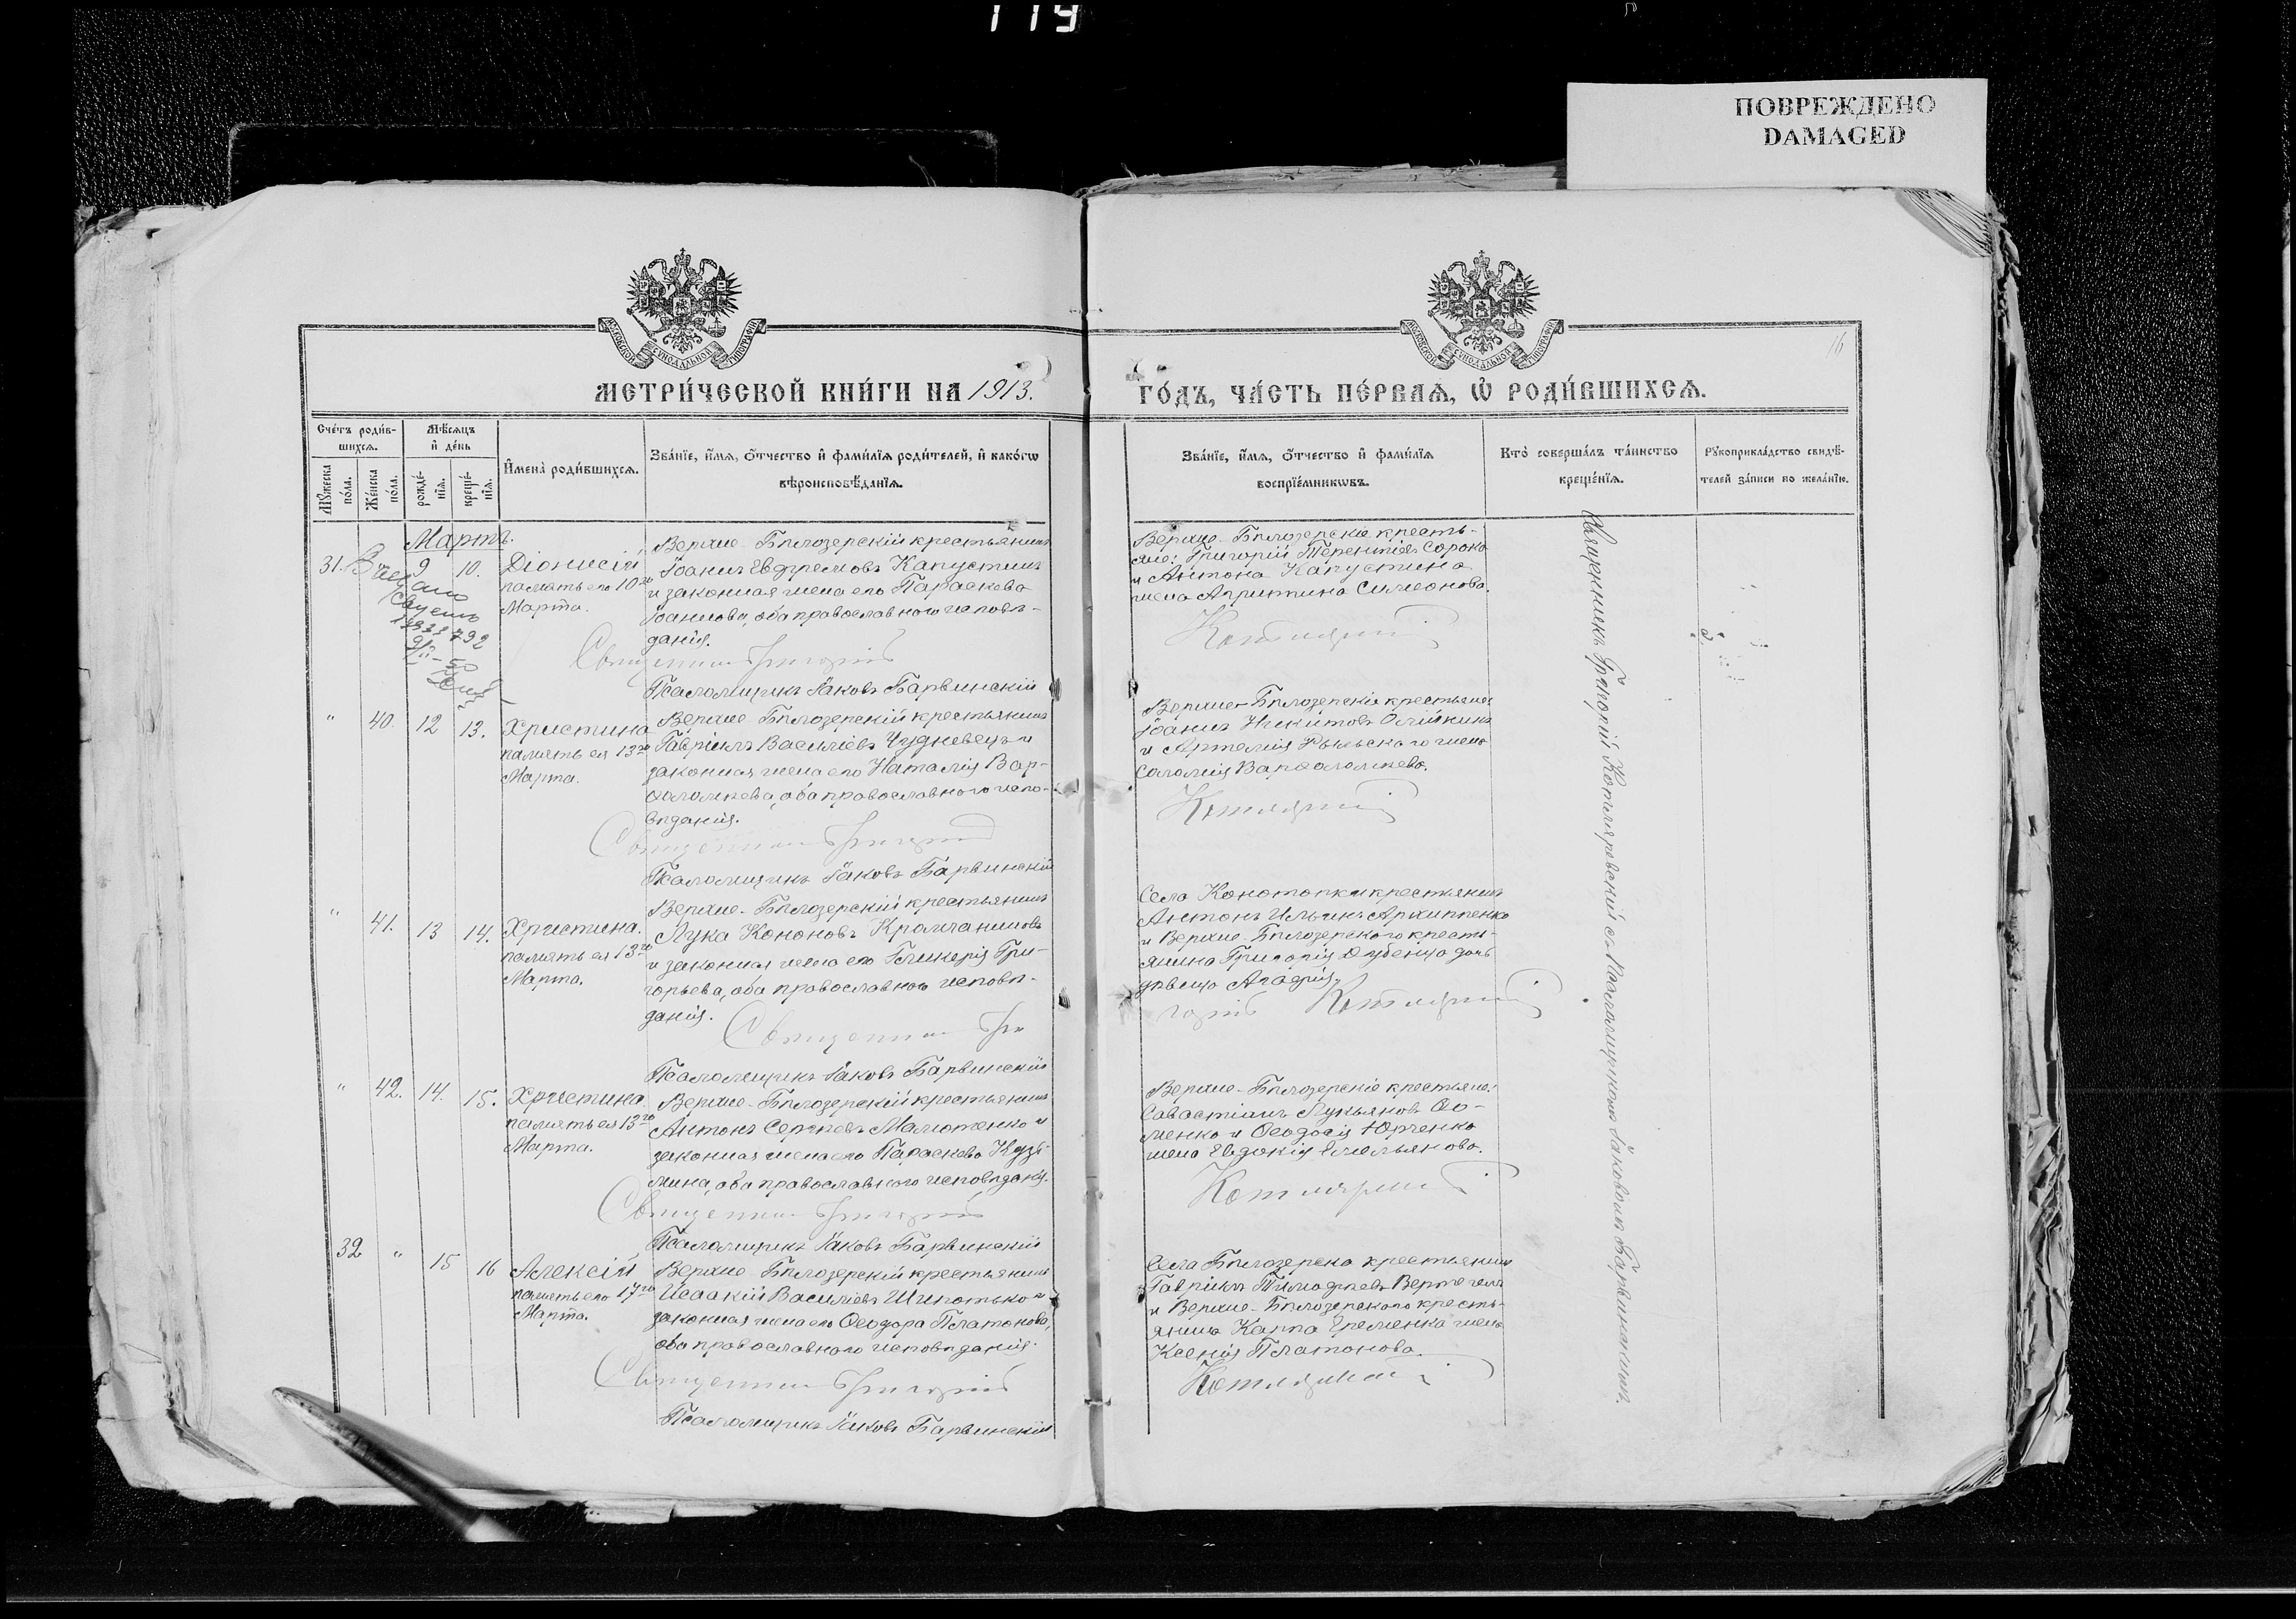 119
ПОВРЕЖДЕНО
DAMAGED
16
МОСКОВСКОЙ СѴНОДАЛЬНОЙ ТИПОГРАФІИ
МОСКОВСКОЙ СѴНОДАЛЬНОЙ ТИПОГРАФІИ
МЕТРИ́ЧЕСКОЙ КНИ́ГИ НА 1913.
ГО́ДЪ, ЧА́СТЬ ПЕ́РВАѦ, Ѽ РОДИ́ВШИХСѦ.
Сче́тъ роди́в-
шихсѧ.
Мꙋ́жеска по́ла.
Же́нска по́ла.
Мѣ́сѧцъ
и҆ де́нь
рожде́-
нїѧ.
креще́-
нїѧ.
И҆мена̀ роди́вшихсѧ.
Зва́нїе, и҆́мѧ, ѻ҆́тчество и҆ фами́лїѧ роди́телей, и҆ како́гѡ
вѣроисповѣ́данїѧ.
Зва́нїе, и҆́мѧ, ѻ҆́тчество и҆ фами́лїѧ
воспрїе́мникѡвъ.
Кто̀ соверша́лъ та́инство
креще́нїѧ.
Рꙋкоприкла́дство свидѣ́-
телей за́писи по жела́нїю.
Мартъ.
31.
9
10.
Діонисій
память его 10го
Марта.
Верхне-Бѣлозерскій крестьянинъ
Іоаннъ Евфремовъ Капустинъ
и законная жена его Параскева
Іоаннова, оба православного исповѣ-
данія.
Священникъ Григорій
Псаломщикъ Іаковъ Барвинскій
Верхне-Бѣлозерскіе кресть-
яне: Григорій Терентіевъ Сороко
и Антона Капустина
жена Агриппина Симеонова.
Котляревскій
"
40.
12
13.
Христина
память ея 13го
Марта.
Верхне-Бѣлозерскій крестьянинъ
Гавріилъ Василіевъ Чудневецъ и
законная жена его Наталія Вар-
ѳоломеева, оба православного испо-
вѣданія.
Священникъ Григорій
Псаломщикъ Іаковъ Барвинскій
Верхне-Бѣлозерскіе крестьяне:
Іоаннъ Никитовъ Олійникъ
и Артемія Рыльскаго жена
Саломія Варѳоломеева.
Котляревскій
"
41.
13
14.
Христина.
память ея 13го
Марта.
Верхне-Бѣлозерскій крестьянинъ
Лука Кононовъ
и законная жена его Гликерія Гри-
горьева, оба православного исповѣ-
данія.
Священникъ Гри
Псаломщикъ Іаковъ Барвинскій
Села Конотопки крестьянинъ
Антонъ Ильинъ Архиппенко
и Верхне-Бѣлозерского кресть-
янина Григорія Дубенца дочь
дѣвица Агафія.
горій Котляревскій
"
42.
14.
15.
Христина
память ея 13го
Марта.
Верхне-Бѣлозерскій крестьянинъ
Антонъ Сергѣевъ Малютенко и
законная жена его Параскева Кузь-
мина, оба православного исповѣданія.
Священникъ Григорій
Псаломщикъ Іаковъ Барвинскій
Верхне-Бѣлозерскіе крестьяне:
Савастіанъ Лукьяновъ Ѳо-
менко и Ѳеодосія Юрченко
жена Евдокія Емельянова.
Котляревскій
32
"
15
16
Алексій
память его 17го
Марта.
Верхне-Бѣлозерскій крестьянинъ
Исаакій Василіевъ Шепотько и
законная жена его Ѳеодора Платонова,
оба православного исповѣданія.
Священникъ Григорій
Псаломщикъ Іаковъ Барвинскій
Села Бѣлозерка крестьянинъ
Гавріилъ Тимофѣевъ Вертегелъ
и Верхне-Бѣлозерского кресть-
янина Карпа Еременка жена
Ксенія Платонова.
Котляревскій
Священникъ Григорій Котляревскій съ Псаломщикомъ Іаковомъ Барвинскимъ.